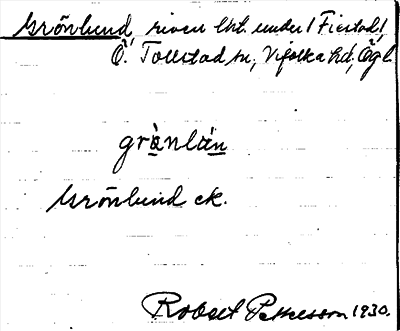 Grönlund, riven lht. under 1 Fiestad,
Ö. Tollstad sn, Vifolka hd, Ögl.
grànlàn
Grönlund ek.
Robert Pettersson 1930.